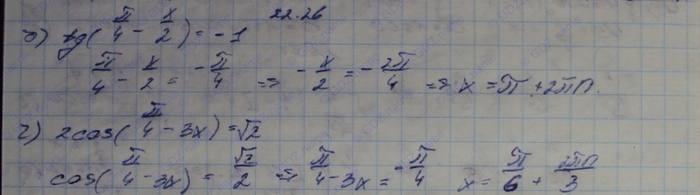 22.26
б) tg(π/4 - x/2) = -1
π/4 - x/2 = -π/4 ⇒ -x/2 = -2π/4 ⇒ x = π + 2πn
г) 2cos(π/4 - 3x) = √2
cos(π/4 - 3x) = √2/2 ⇒ π/4 - 3x = -π/4 x = π/6 + 2πn/3